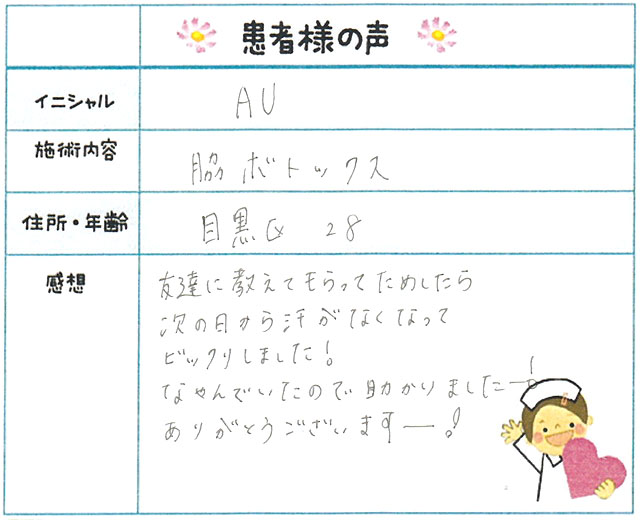 患者様の声
イニシャル AU
施術内容 脇ボトックス
住所・年齢 目黒区 28
感想 友達に教えてもらってためしたら
次の日から汗がなくなって
ビックリしました!
なやんでいたので助かりましたー!
ありがとうございますー!